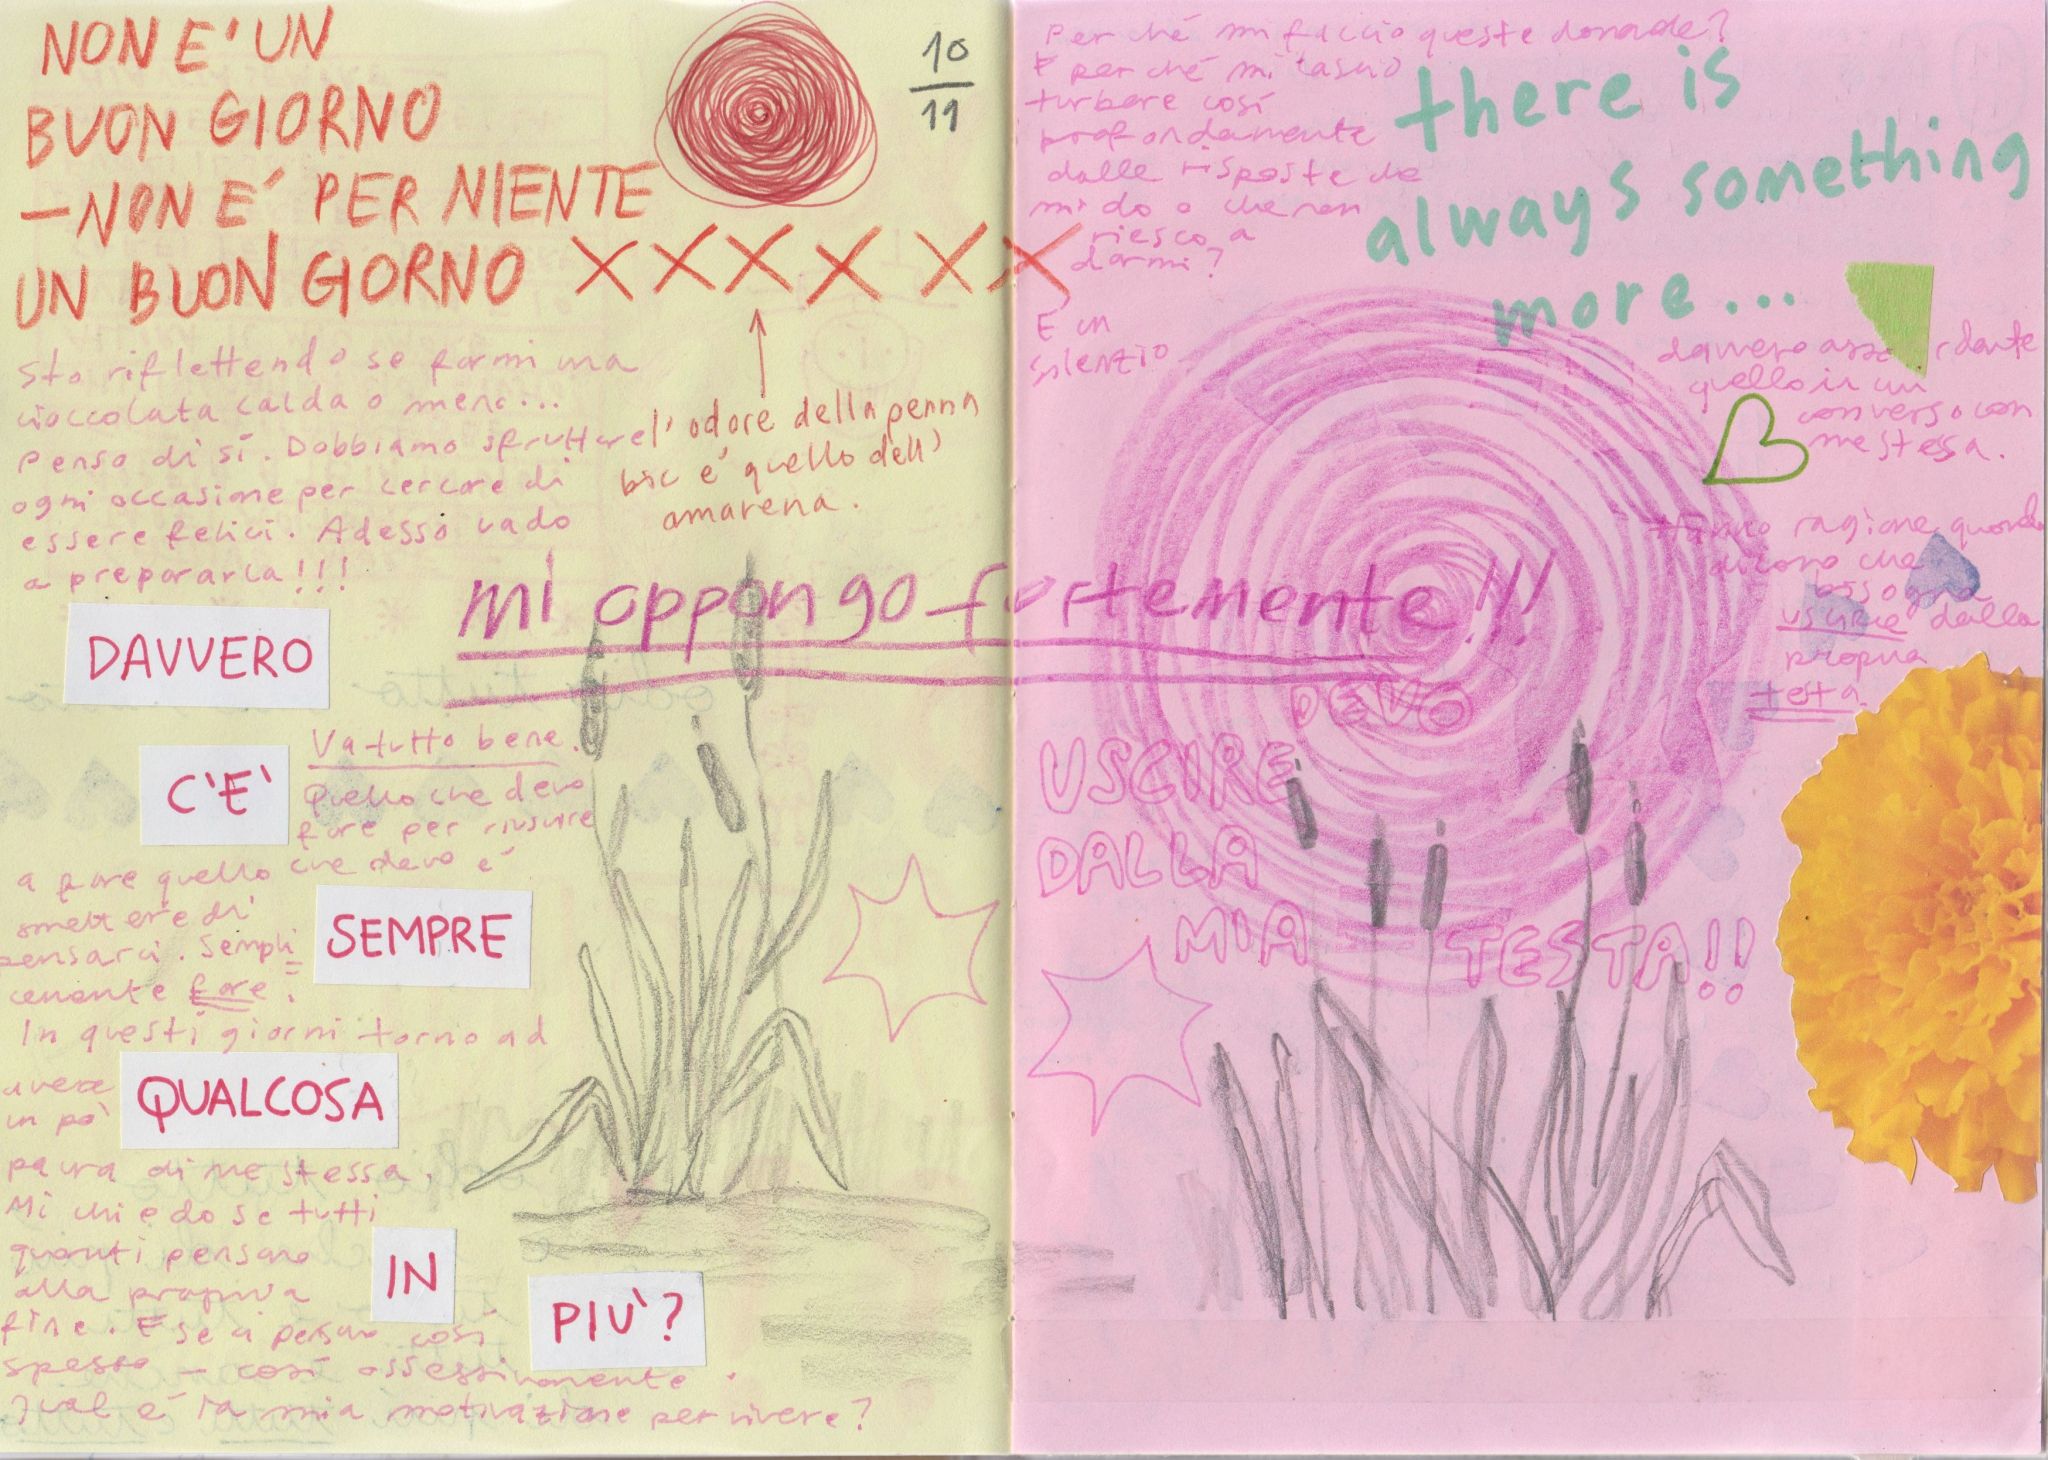 NON E' UN
BUON GIORNO
– NON E' PER NIENTE
UN BUON GIORNO XXXXXX
10
11
Sto riflettendo se farmi una
cioccolata calda o meno...
Penso di sì. Dobbiamo sfruttare
ogni occasione per cercare di
essere felici. Adesso vado
a prepararla!!!
l'odore della penna
bic è quello dell'
amarena.
mi oppongo fortemente!!!
DAVVERO
C'E'
SEMPRE
QUALCOSA
IN
PIU'?
Va tutto bene.
Quello che devo
fare per riuscire
a fare quello che devo è
smettere di
pensarci. Sempli
cemente fare.
In questi giorni torno ad
avere
un po'
paura di me stessa.
Mi chiedo se tutti
quanti pensano
alla propria
fine. E se ci pensano così
spesso – così ossessivamente.
Qual è la mia motivazione per vivere?
Perché mi faccio queste domande?
E perché mi lascio
turbare così
profondamente
dalle risposte che
mi do o che non
riesco a
darmi?
there is
always something
more...
È un
silenzio
davvero assordante
quello in cui
converso con
me stessa.
Hanno ragione quando
dicono che
bisogna
uscire dalla
propria
testa.
DEVO
USCIRE
DALLA
MIA TESTA!!